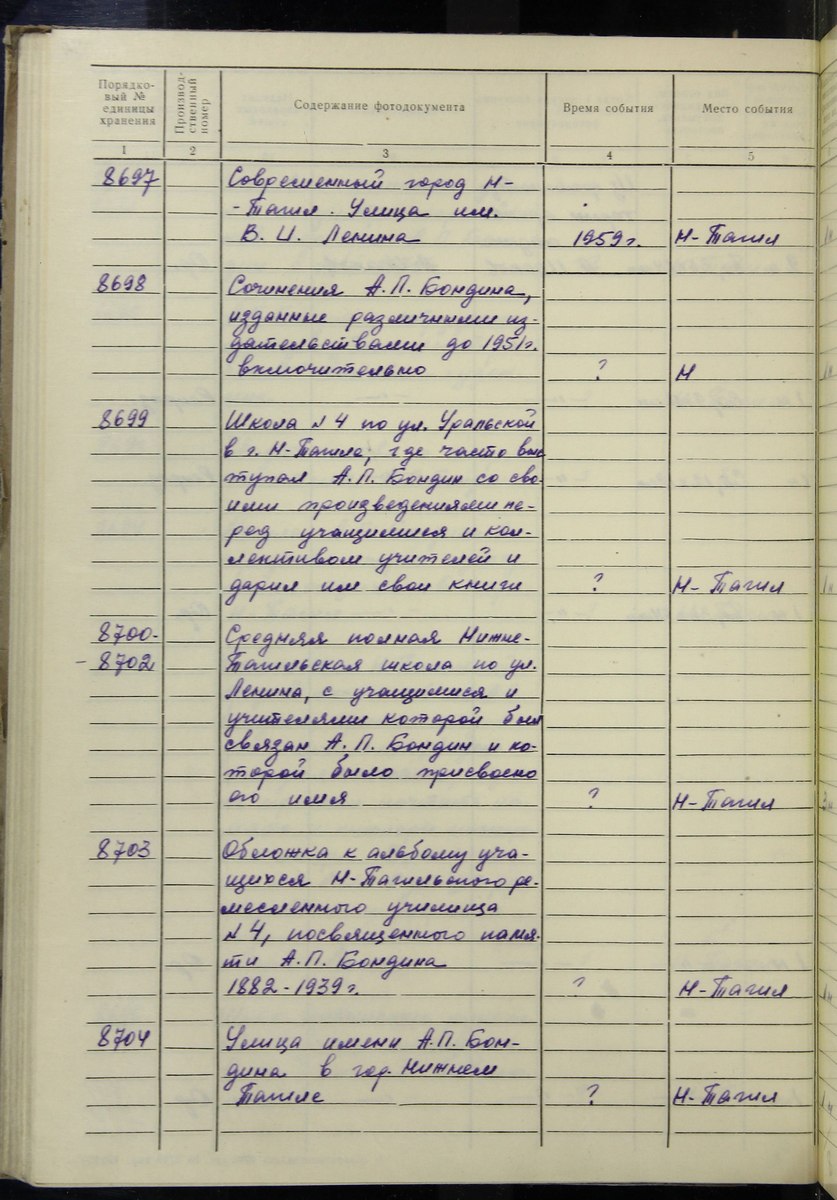 Порядко-
вый №
единицы
хранения
Производ-
ственный
номер
Содержание фотодокумента
Время события
Место события
1
2
3
4
5
8697
Современный город Н-
-Тагил. Улица им.
В. И. Ленина
1959 г.
Н-Тагил
8698
Сочинения А.П. Бондина,
изданные различными из-
дательствами до 1951 г.
включительно
?
Н
8699
Школа №4 по ул. Уральской
в г. Н-Тагиле, где часто выс
тупал А.П. Бондин со сво-
ими произведениями пе-
ред учащимися и кол-
лективом учителей и
дарил им свои книги
?
Н-Тагил
8700-
-8702
Средняя полная Нижне-
Тагильская школа по ул.
Ленина, с учащимися и
учителями которой был
связан А.П. Бондин и ко-
торой было присвоено
его имя
?
Н-Тагил
8703
Обложка к альбому уча-
щихся Н-Тагильского ре-
месленного училища
№4, посвященного памя-
ти А.П. Бондина
1882-1939 г.
?
Н-Тагил
8704
Улица имени А.П. Бон-
дина в гор. Нижнем
Тагиле
?
Н-Тагил